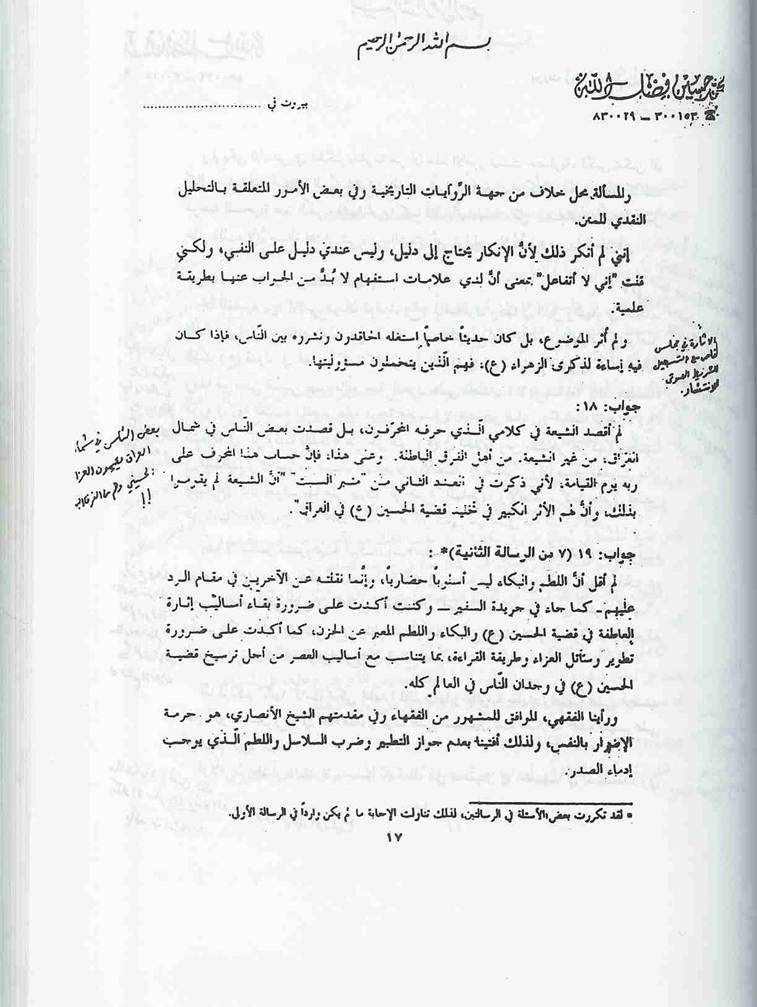 بسم الله الرحمن الرحيم
محمد حسين فضل الله
☎ ٣٠٠١٥٣ – ٨٣٠٠٢٩
بيروت في ..............................
والمسألة محل خلاف من جهة الرّوايات التاريخية وفي بعض الأمور المتعلقة بالتحليل
النقدي للمتن.
إنني لم أنكر ذلك لِأنَّ الإنكار يحتاج إلى دليل، وليس عندي دليل على النفي، ولكني
قلت "إني لا أتفاعل" بمعنى أنَّ لدي علامات استفهام لا بُدَّ من الجواب عنها بطريقة
علمية.
ولم أُثر الموضوع، بل كان حديثاً خاصاً استغله الحاقدون ونشروه بين النّاس، فإذا كان
فيه إساءة لذكرى الزهراء (ع)؛ فهم الّذين يتحملون مسؤوليتها.
الاثارة في مجلس
خاص مع التسجيل
للانتشار.
جواب: ١٨:
لم أقصد الشيعة في كلامي الّذي حرفه المحرّفون، بل قصدت بعض النّاس في شمال
العراق؛ من غير الشيعة. من أهل الفرق الباطلة. وعلى هذا؛ فإنَّ حساب هذا المحرف على
ربه يوم القيامة؛ لأني ذكرت في العدد الثاني من "منبر السبت" "أنَّ الشيعة لم يقوموا
بذلك، وأنَّ لهم الأثر الكبير في تخليد قضية الحسين (ع) في العراق".
بعض الناس في شمال
العراق يقيمون العزاء
الحسيني
!!
جواب: ١٩ (٧ من الرسالة الثانية)* :
لم أقل أنَّ اللطم والبكاء ليس أسلوباً حضارياً، وإنَّما نقلته عن الآخرين في مقام الرد
عليهم – كما جاء في جريدة السفير – وكنت أكدت على ضرورة بقاء أساليب إثارة
العاطفة في قضية الحسين (ع) والبكاء واللطم المعبر عن الحزن، كما أكدت على ضرورة
تطوير وسائل العزاء وطريقة القراءة، بما يتناسب مع أساليب العصر من أجل ترسيخ قضية
الحسين (ع) في وجدان النّاس في العالم كله.
ورأينا الفقهي، الموافق للمشهور من الفقهاء وفي مقدمتهم الشيخ الأنصاري، هو حرمة
الإضرار بالنفس، ولذلك أفتينا بعدم جواز التطبير وضرب السلاسل واللطم الّذي يوجب
إدماء الصدر.
* لقد تكررت بعض الأسئلة في الرسالتين، لذلك تناولت الإجابة ما لم يكن وارداً في الرسالة الأولى.
١٧